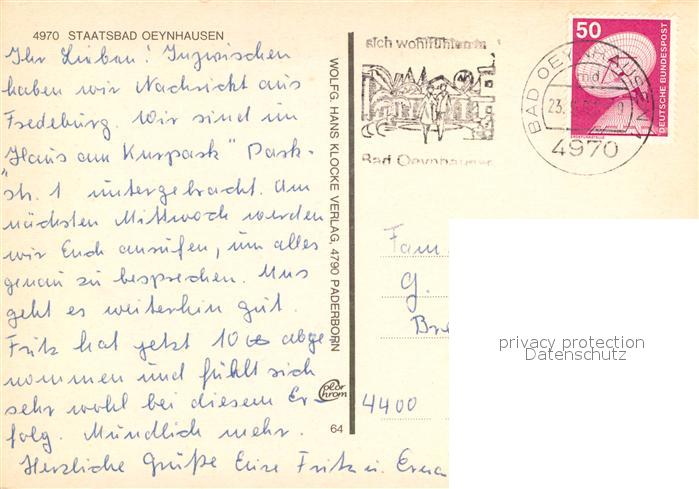 4970 STAATSBAD OEYNHAUSEN
Ihr Lieben! Inzwischen
haben wir Nachricht aus
Fredeburg. Wir sind im
"Haus am Kurpark" Park-
str. 1 untergebracht. Am
nächsten Mittwoch werden
wir Euch anrufen, um alles
genau zu besprechen. Uns
geht es weiterhin gut.
Fritz hat jetzt 10 abge
nommen und fühlt sich
sehr wohl bei diesem Er-
folg. Mündlich mehr.
Herzliche Grüße Eure Fritz u. Erna
WOLFG. HANS KLOCKE VERLAG, 4790 PADERBORN
Color
Chrom
64
sich wohlfühlen in
Bad Oeynhausen
BAD OEYNHAUSEN 1
23.
4970
50
DEUTSCHE BUNDESPOST
Fam.
G.
Bre
4400
privacy protection
Datenschutz